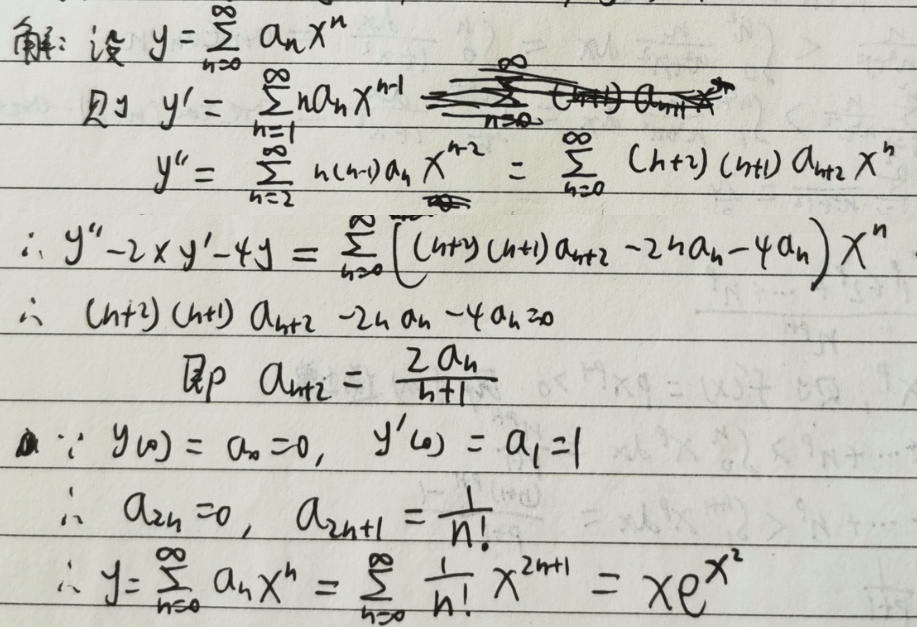 解: 设 y = ∑_{n=0}^{∞} a_n x^n
则 y' = ∑_{n=1}^{∞} n a_n x^{n-1}
y'' = ∑_{n=2}^{∞} n(n-1) a_n x^{n-2} = ∑_{n=0}^{∞} (n+2)(n+1) a_{n+2} x^n
∴ y'' - 2xy' - 4y = ∑_{n=0}^{∞} ((n+2)(n+1) a_{n+2} - 2n a_n - 4 a_n) x^n
∴ (n+2)(n+1) a_{n+2} - 2n a_n - 4 a_n = 0
即 a_{n+2} = \frac{2 a_n}{n+1}
∵ y(0) = a_0 = 0, y'(0) = a_1 = 1
∴ a_{2n} = 0, a_{2n+1} = \frac{1}{n!}
∴ y = ∑_{n=0}^{∞} a_n x^n = ∑_{n=0}^{∞} \frac{1}{n!} x^{2n+1} = x e^{x^2}